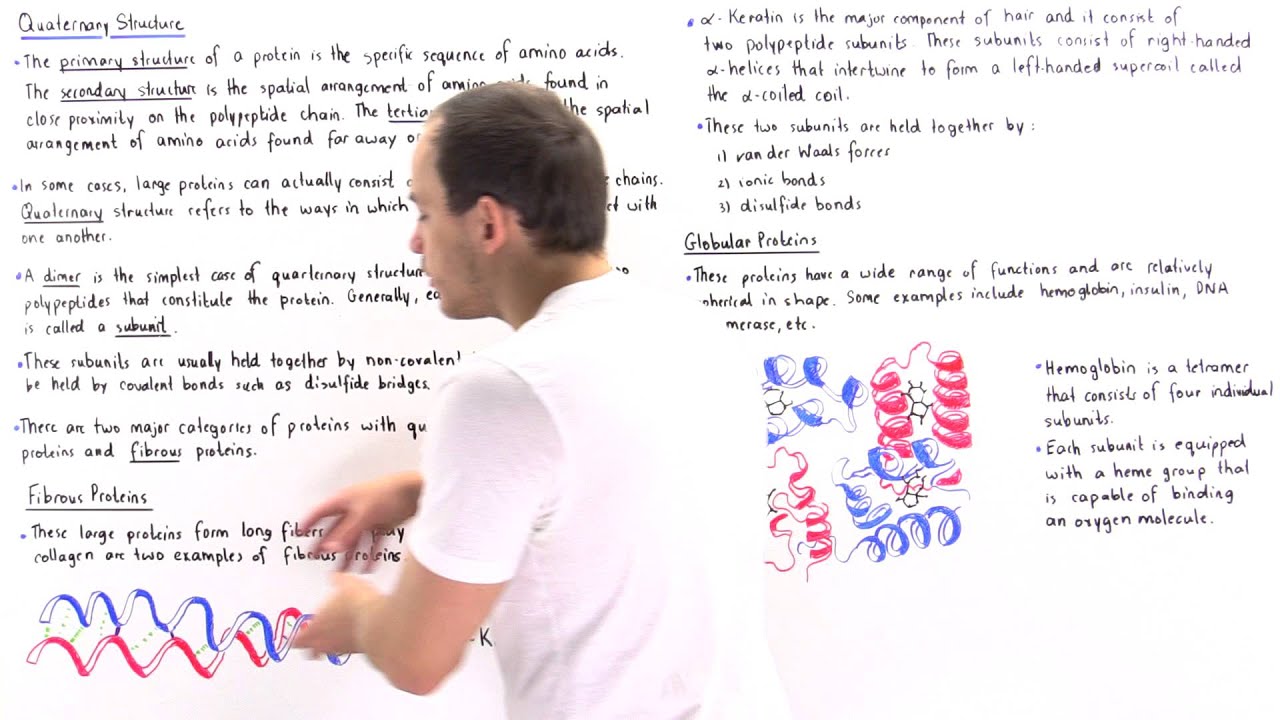 Quaternary Structure
• The primary structure of a protein is the specific sequence of amino acids.
The secondary structure is the spatial arrangement of amino acids found in
close proximity on the polypeptide chain. The the spatial
arrangement of amino acids found far away
• In some cases, large proteins can actually consist chains.
Quaternary structure refers to the ways in which with
one another.
• A dimer is the simplest case of
polypeptides that constitute the protein. Generally,
is called a subunit.
• These subunits are usually held together by non-covalent
be held by covalent bonds such as disulfide bridges.
• There are two major categories of proteins with
proteins and fibrous proteins.
Fibrous Proteins
• These large proteins form long fibers
collagen are two examples of fibrous proteins
• α-Keratin is the major component of hair and it consist of
two polypeptide subunits. These subunits consist of right-handed
α-helices that intertwine to form a left-handed supercoil called
the α-coiled coil.
• These two subunits are held together by:
1) van der Waals forces
2) ionic bonds
3) disulfide bonds
Globular Proteins
• These proteins have a wide range of functions and are relatively
in shape. Some examples include hemoglobin, insulin, DNA
etc.
• Hemoglobin is a tetramer
that consists of four individual
subunits.
• Each subunit is equipped
with a heme group that
is capable of binding
an oxygen molecule.